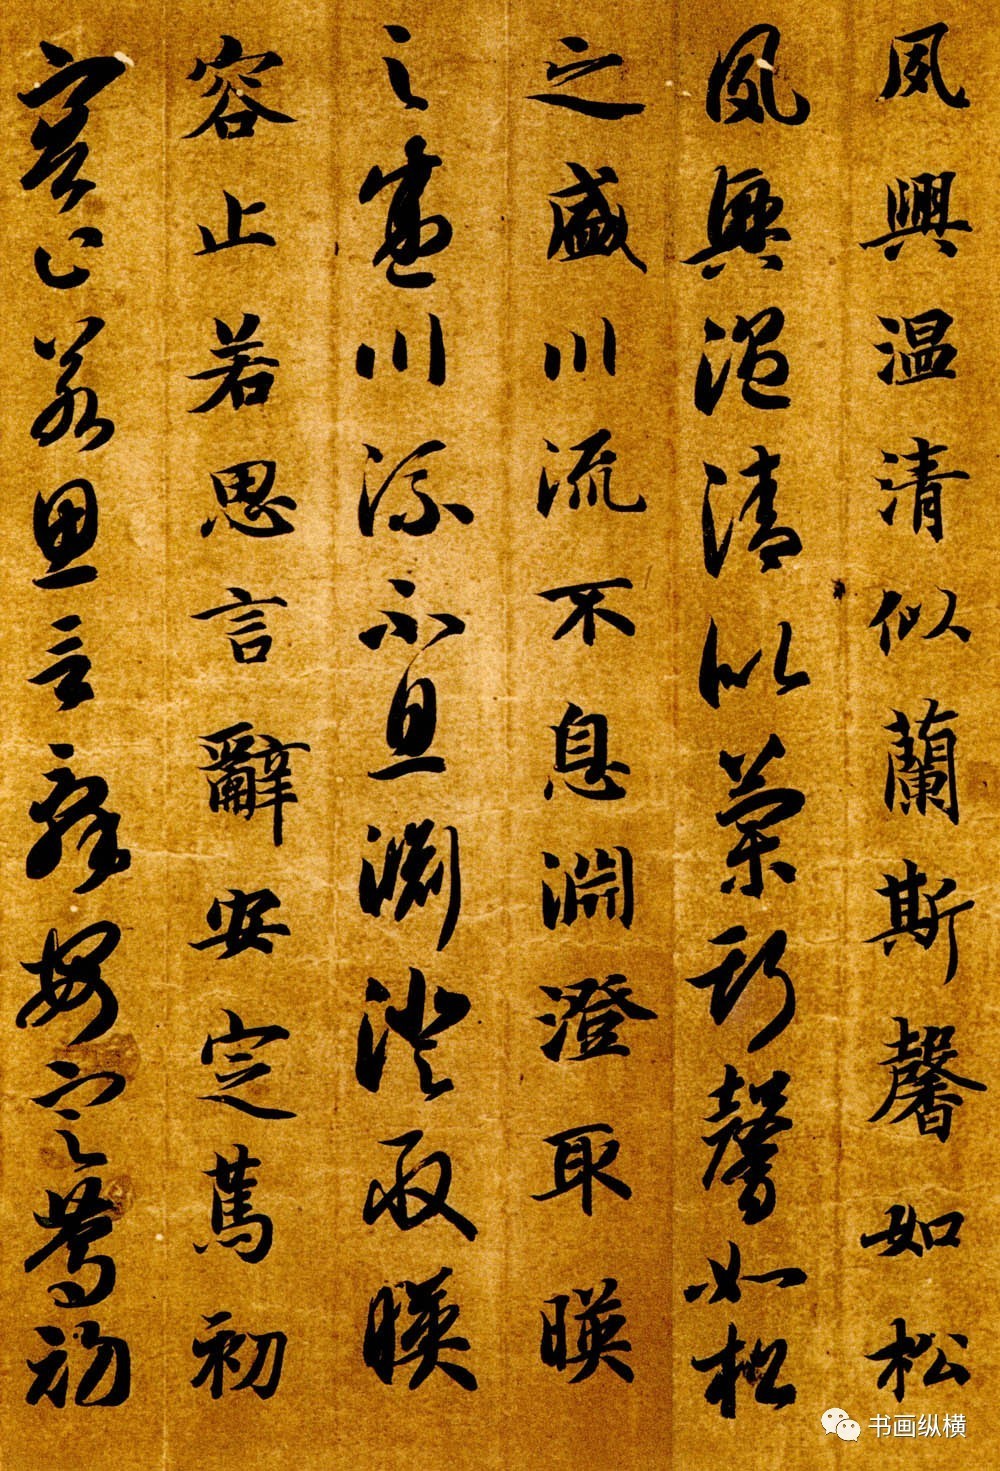 夙興温清似蘭斯馨如松
夙興温清似蘭斯馨如松
之盛川流不息淵澄取暎
之盛川流不息淵澄取暎
容止若思言辭安定篤初
容止若思言辭安定篤初
书画纵横